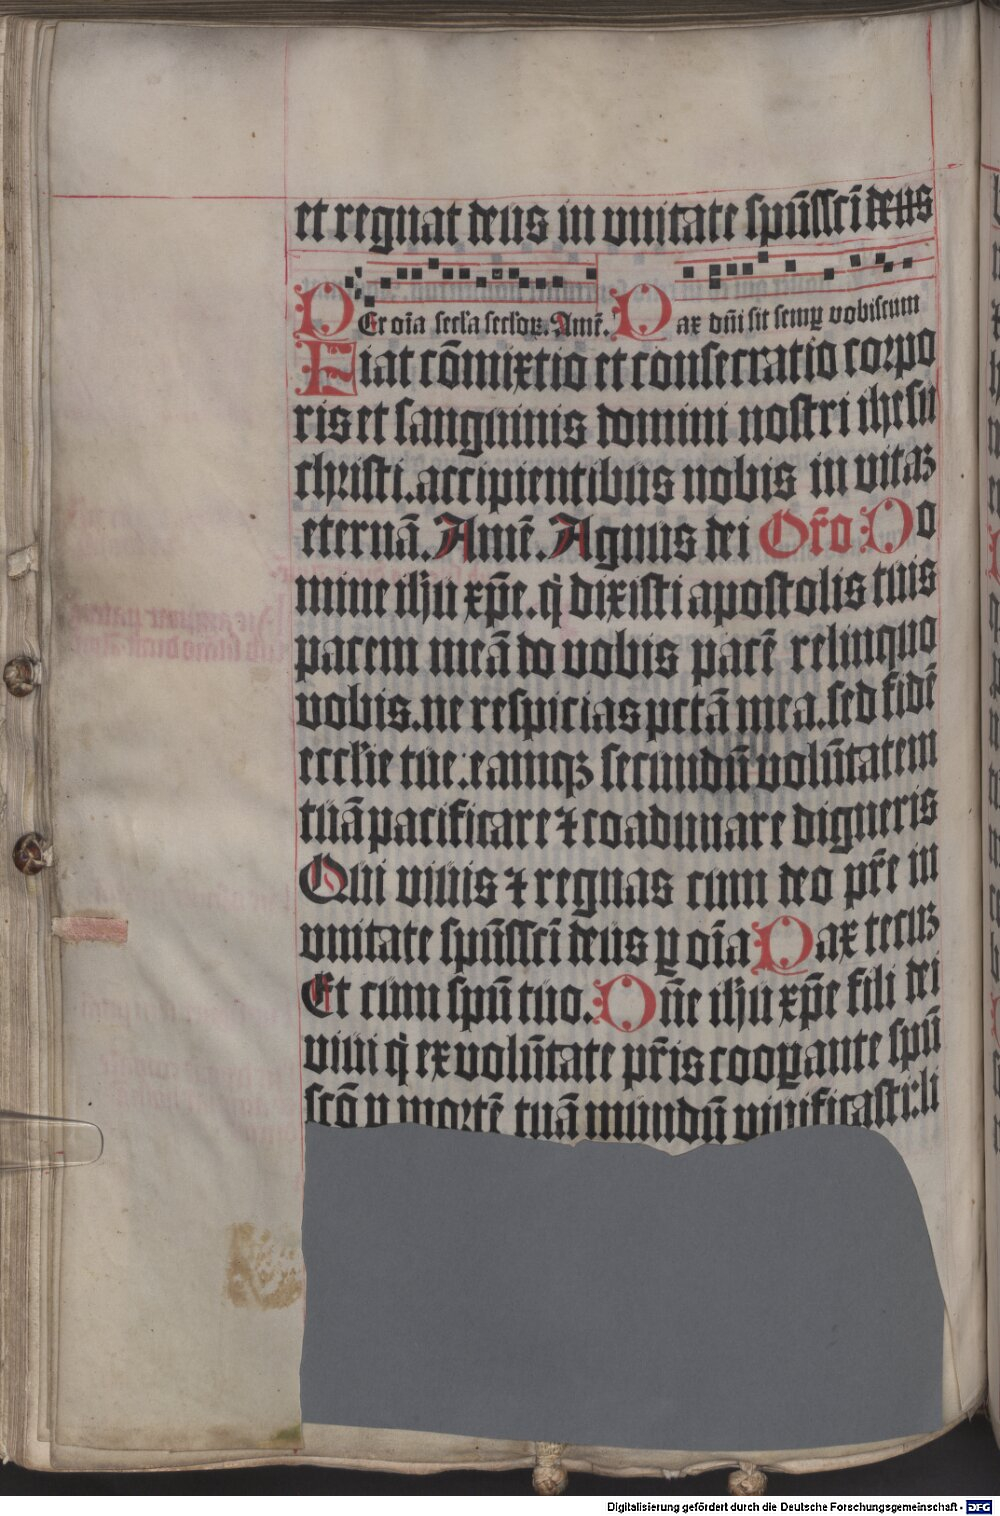 et regnat deus in vnitate spūssci̅ deus
Per oi̅a secl̅a secl̅oꝝ. Ame̅. Pax dn̅i sit semꝑ vobiscum
Fiat co̅mixtio et consecratio corpo
ris et sanguinis domini nostri ihesu
christi. accipientibus nobis in vitaꝫ
eterna̅. Ame̅. Agnus dei Or̅o Do
mine ih̅u xp̅e. q̇ dixisti apostolis tuis
pacem mea̅ do vobis pace̅ relinquo
vobis. ne respicias pcta̅ mea. sed fide̅
eccl̅ie tue: eamqꝫ secundu̅ volu̅tatem
tua̅ pacificare ⁊ coadunare digneris
Qui viuis ⁊ regnas cum deo pr̅e in
vnitate spu̅ssci̅ deus ꝑ oi̅a Pax tecuꝫ
Et cum spu̅ tuo. Dn̅e ih̅u xp̅e fili dei
viui q̇ ex volu̅tate pr̅is cooꝑante spu̅
sco̅ ꝑ morte̅ tua̅ mundu̅ viuificasti: li
Digitalisierung gefördert durch die Deutsche Forschungsgemeinschaft - DFG